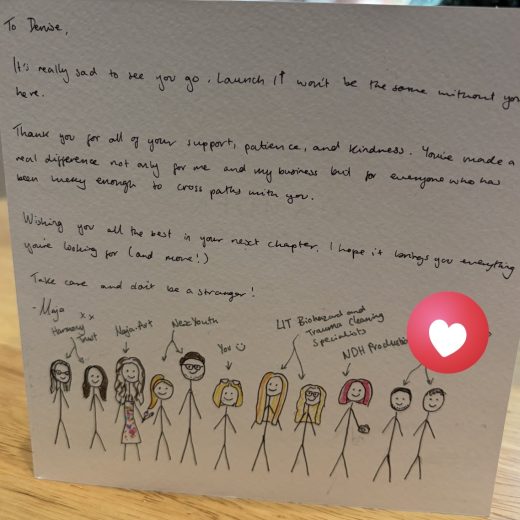 To Denise,
It's really sad to see you go. Launch It won't be the same without you
here.
Thank you for all of your support, patience, and kindness. You've made a
real difference not only for me and my business but for everyone who has
been lucky enough to cross paths with you.
Wishing you all the best in your next chapter. I hope it brings you everything
you're looking for (and more!)
Take care and don't be a stranger!
- Maja xx
Harmony Trust
Naja-Art
NexYouth
You
LIT Biohazard and
Trauma Cleaning
Specialists
NDH